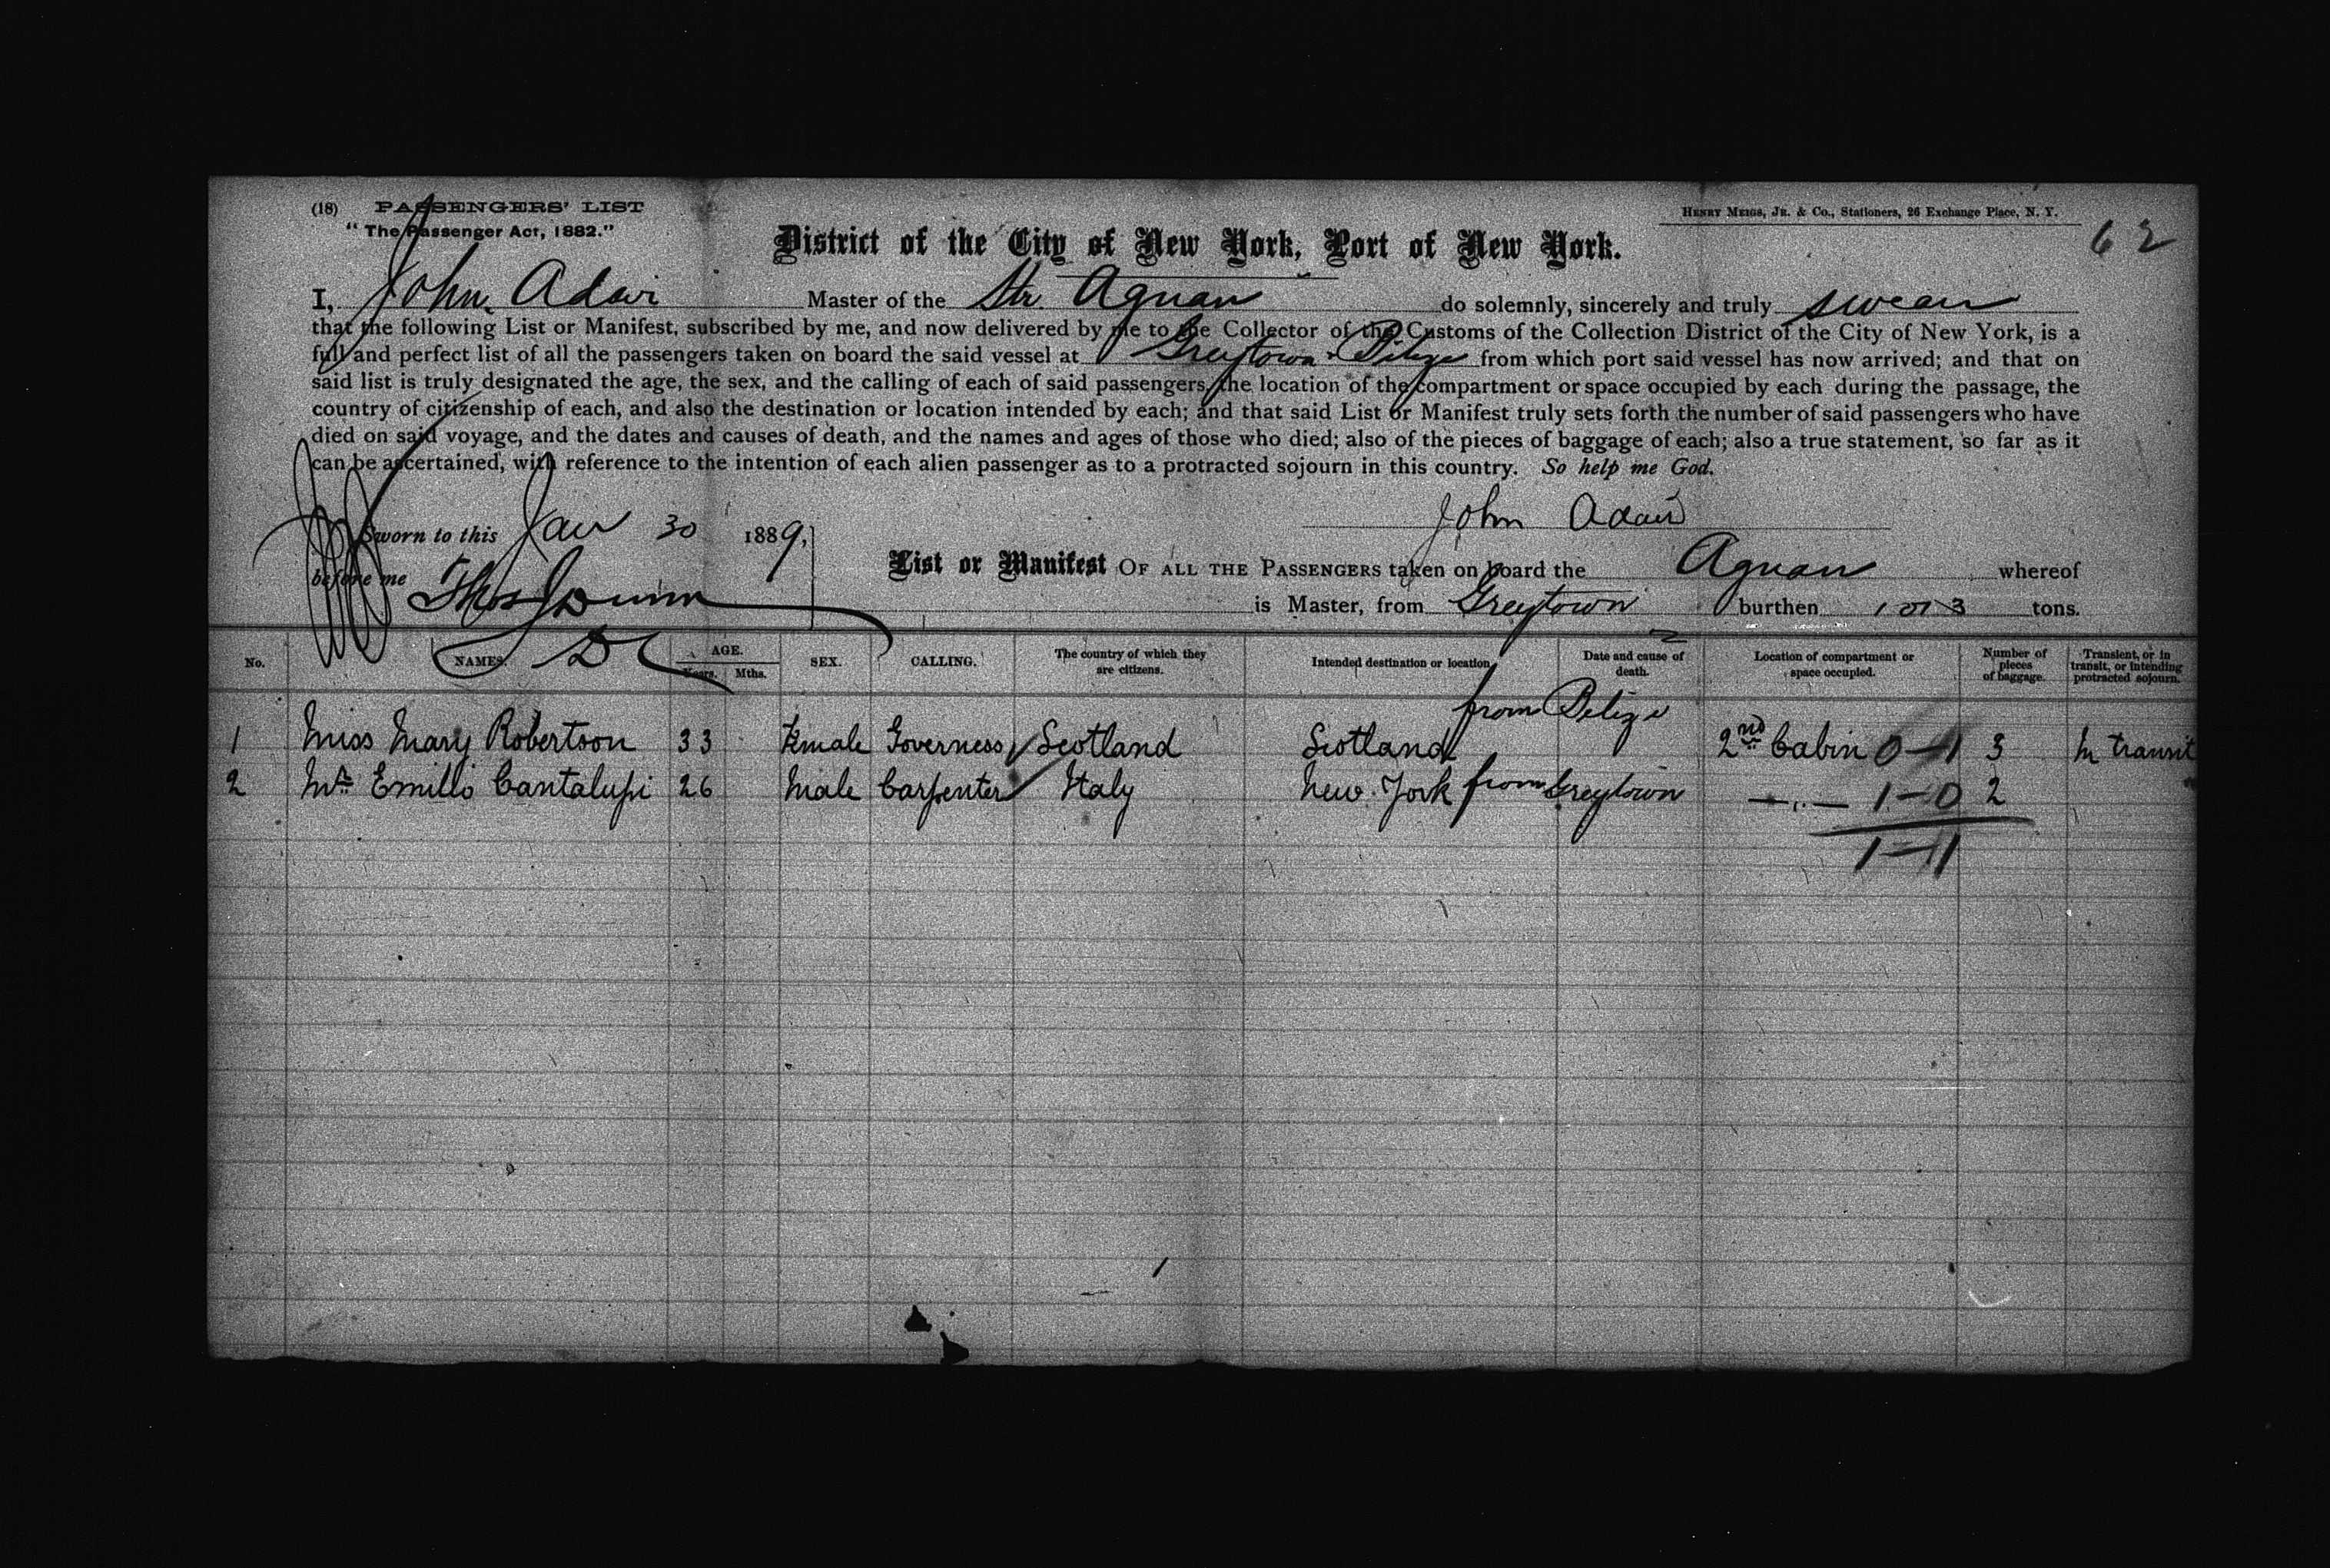 (18) PASSENGERS' LIST
"The Passenger Act, 1882."
HENRY MEIGS, JR. & CO., Stationers, 26 Exchange Place, N. Y.
62
District of the City of New York, Port of New York.
I, John Adair Master of the Str Aguan do solemnly, sincerely and truly swear
that the following List or Manifest, subscribed by me, and now delivered by me to the Collector of the Customs of the Collection District of the City of New York, is a
full and perfect list of all the passengers taken on board the said vessel at Greytown & Belize from which port said vessel has now arrived; and that on
said list is truly designated the age, the sex, and the calling of each of said passengers, the location of the compartment or space occupied by each during the passage, the
country of citizenship of each, and also the destination or location intended by each; and that said List or Manifest truly sets forth the number of said passengers who have
died on said voyage, and the dates and causes of death, and the names and ages of those who died; also of the pieces of baggage of each; also a true statement, so far as it
can be ascertained, with reference to the intention of each alien passenger as to a protracted sojourn in this country. So help me God.
John Adair
Sworn to this Jan 30 1889,
before me Thos J Dunn
List or Manifest OF ALL THE PASSENGERS taken on board the Aguan whereof
is Master, from Greytown burthen 1013 tons.
No. NAMES. AGE. Years. Mths. SEX. CALLING. The country of which they are citizens. Intended destination or location. Date and cause of death. Location of compartment or space occupied. Number of pieces of baggage. Transient, or in transit, or intending protracted sojourn.
from Belize
1 Miss Mary Robertson 33 Female Governess Scotland Scotland 2nd Cabin 0-1 3 In transit
2 Mr Emillo Cantalupi 26 Male Carpenter Italy New York from Greytown —„— 1-0 2
1-1